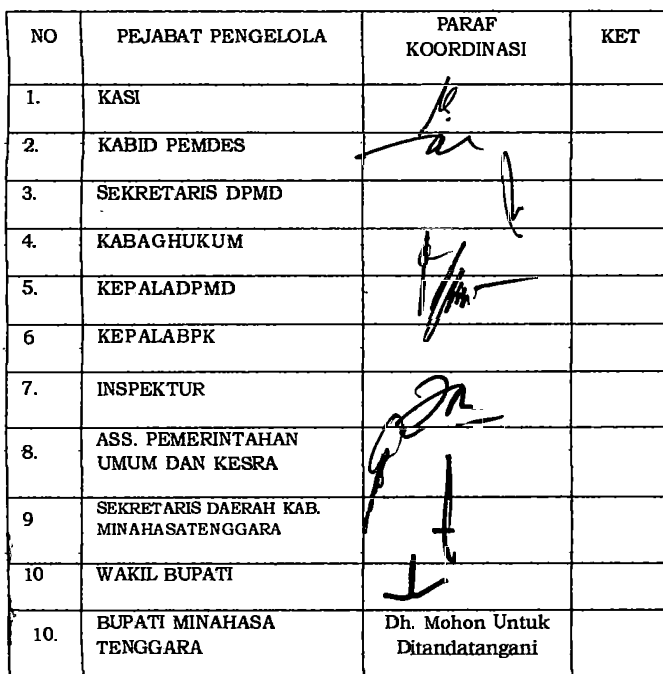 NO PEJABAT PENGELOLA PARAF KOORDINASI KET
1. KASI
2. KABID PEMDES
3. SEKRETARIS DPMD
4. KABAGHUKUM
5. KEPALADPMD
6 KEPALABPK
7. INSPEKTUR
8. ASS. PEMERINTAHAN
UMUM DAN KESRA
9 SEKRETARIS DAERAH KAB.
MINAHASATENGGARA
10 WAKIL BUPATI
10. BUPATI MINAHASA
TENGGARA
Dh. Mohon Untuk
Ditandatangani